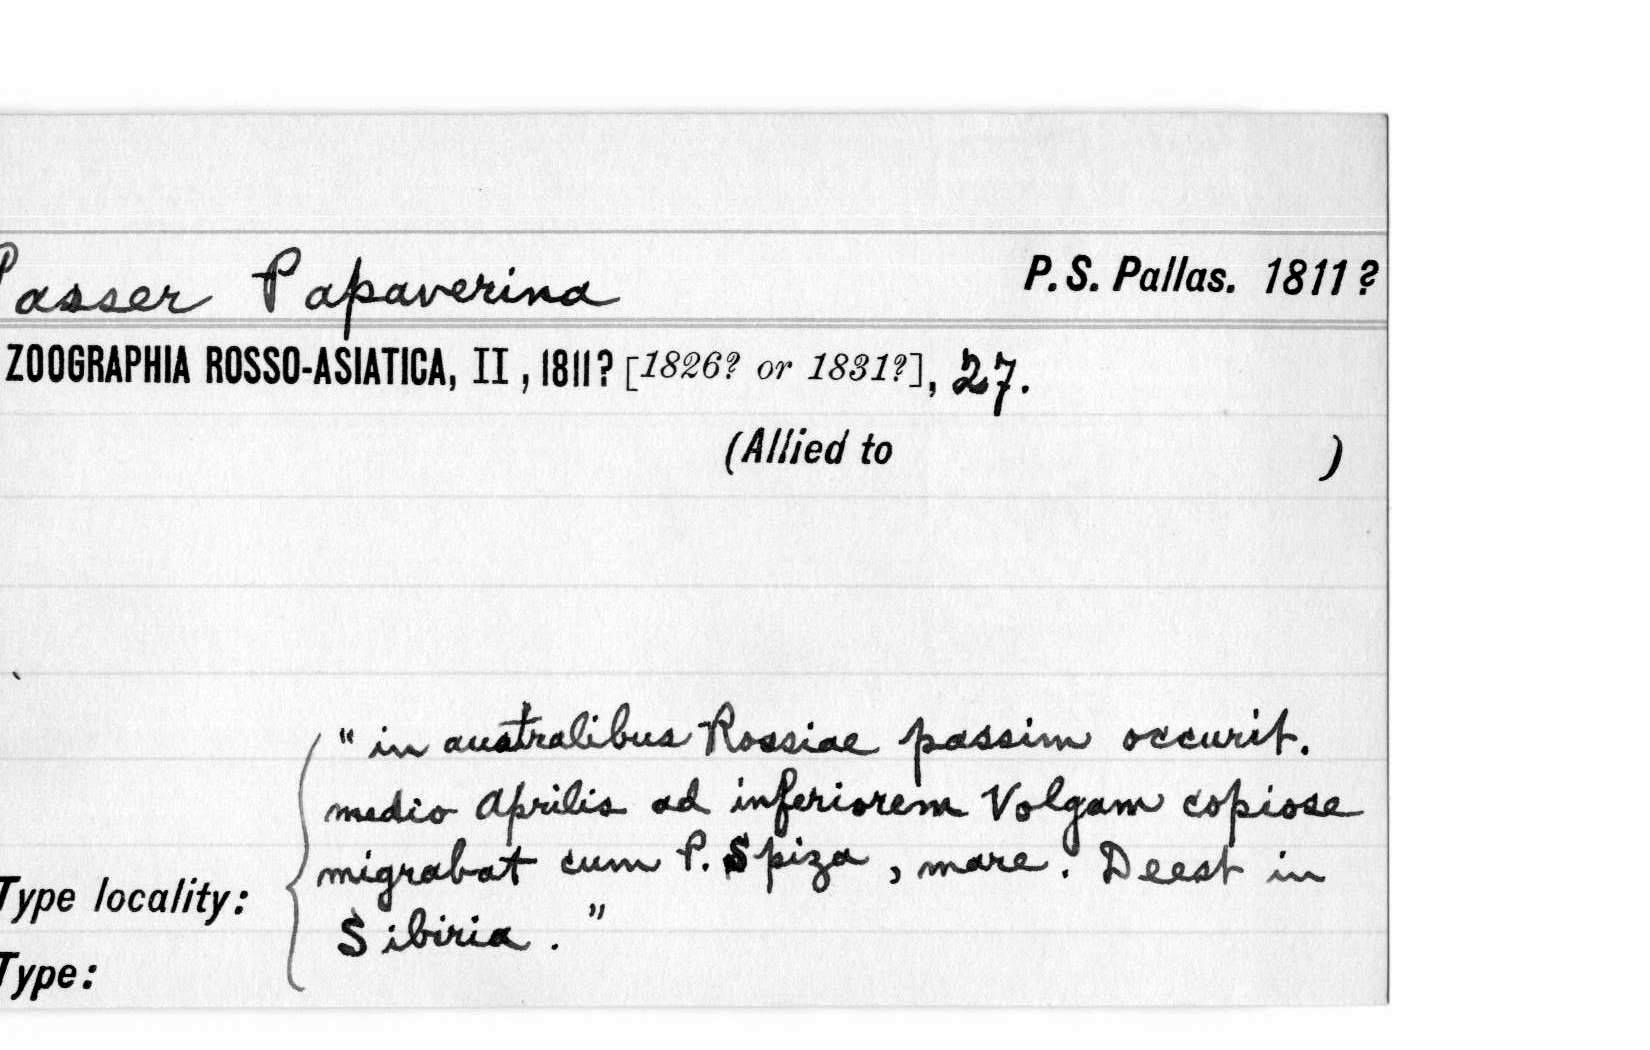 Passer Papaverina P. S. Pallas. 1811?
ZOOGRAPHIA ROSSO-ASIATICA, II, 1811? [1826? or 1831?], 27.
(Allied to )
"in australibus Rossiae passim occurit.
medio Aprilis ad inferiorem Volgam copiose
migrabat cum P. Spiza, mare. Deest in
Type locality:
Sibiria."
Type: